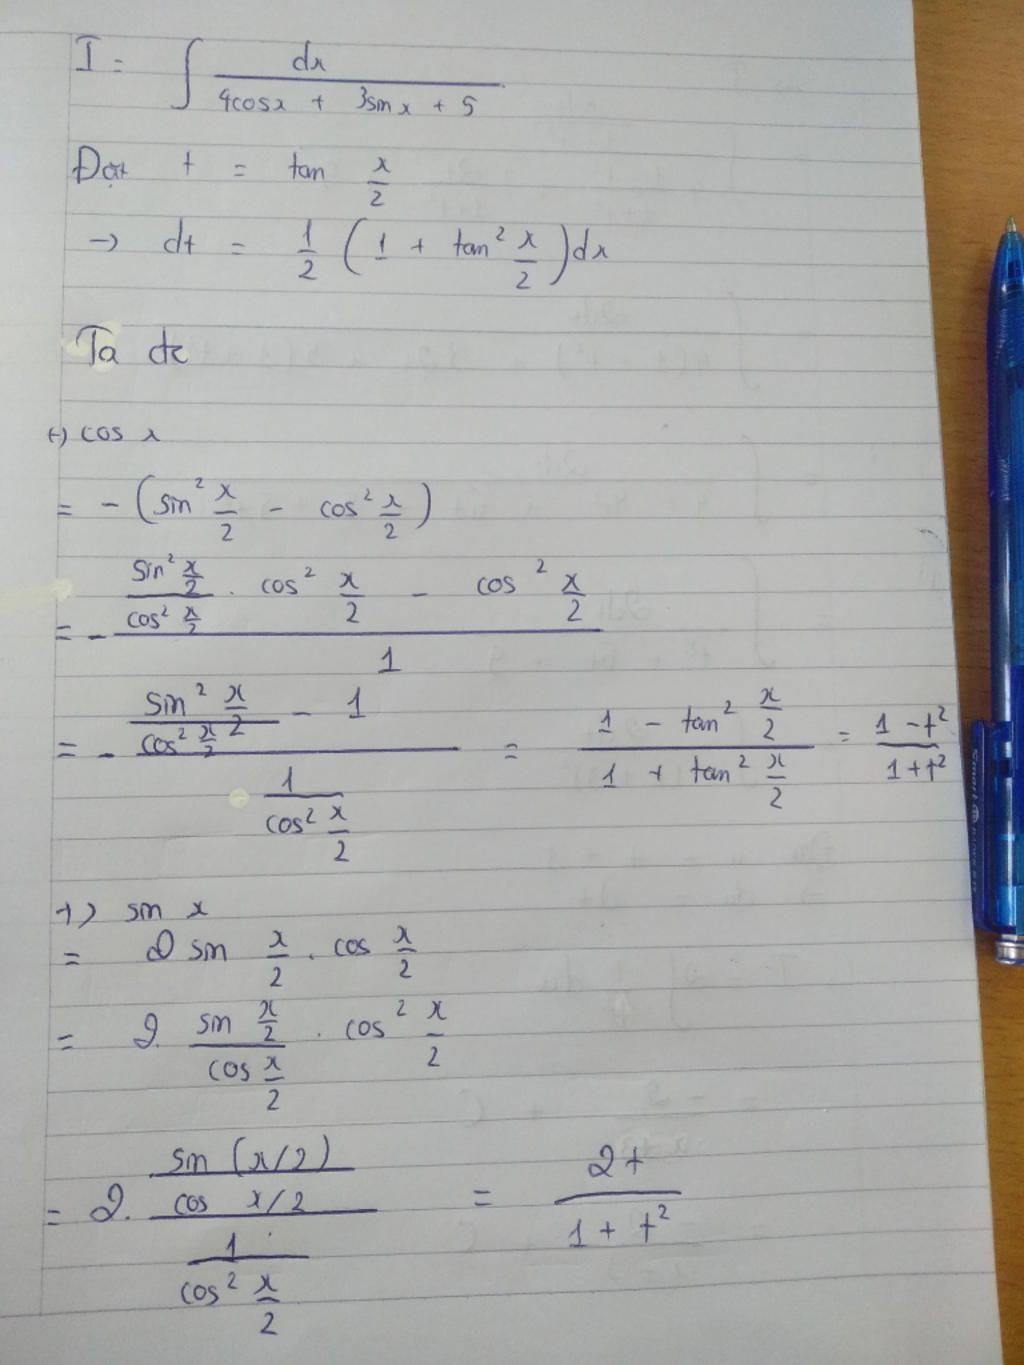 I = ∫ dx / (4cosx + 3sinx + 5)
Đặt t = tan x/2
→ dt = 1/2 (1 + tan² x/2) dx
Ta đc
+) cos x
= - (sin² x/2 - cos² x/2)
= - (sin² x/2 / cos² x/2 . cos² x/2 - cos² x/2) / 1
= - (sin² x/2 / cos² x/2 - 1) / (1 / cos² x/2) = (1 - tan² x/2) / (1 + tan² x/2) = (1 - t²) / (1 + t²)
+) sin x
= 2 sin x/2 . cos x/2
= 2. sin x/2 / cos x/2 . cos² x/2
= 2. (sin (x/2) / cos x/2) / (1 / cos² x/2) = 2t / (1 + t²)